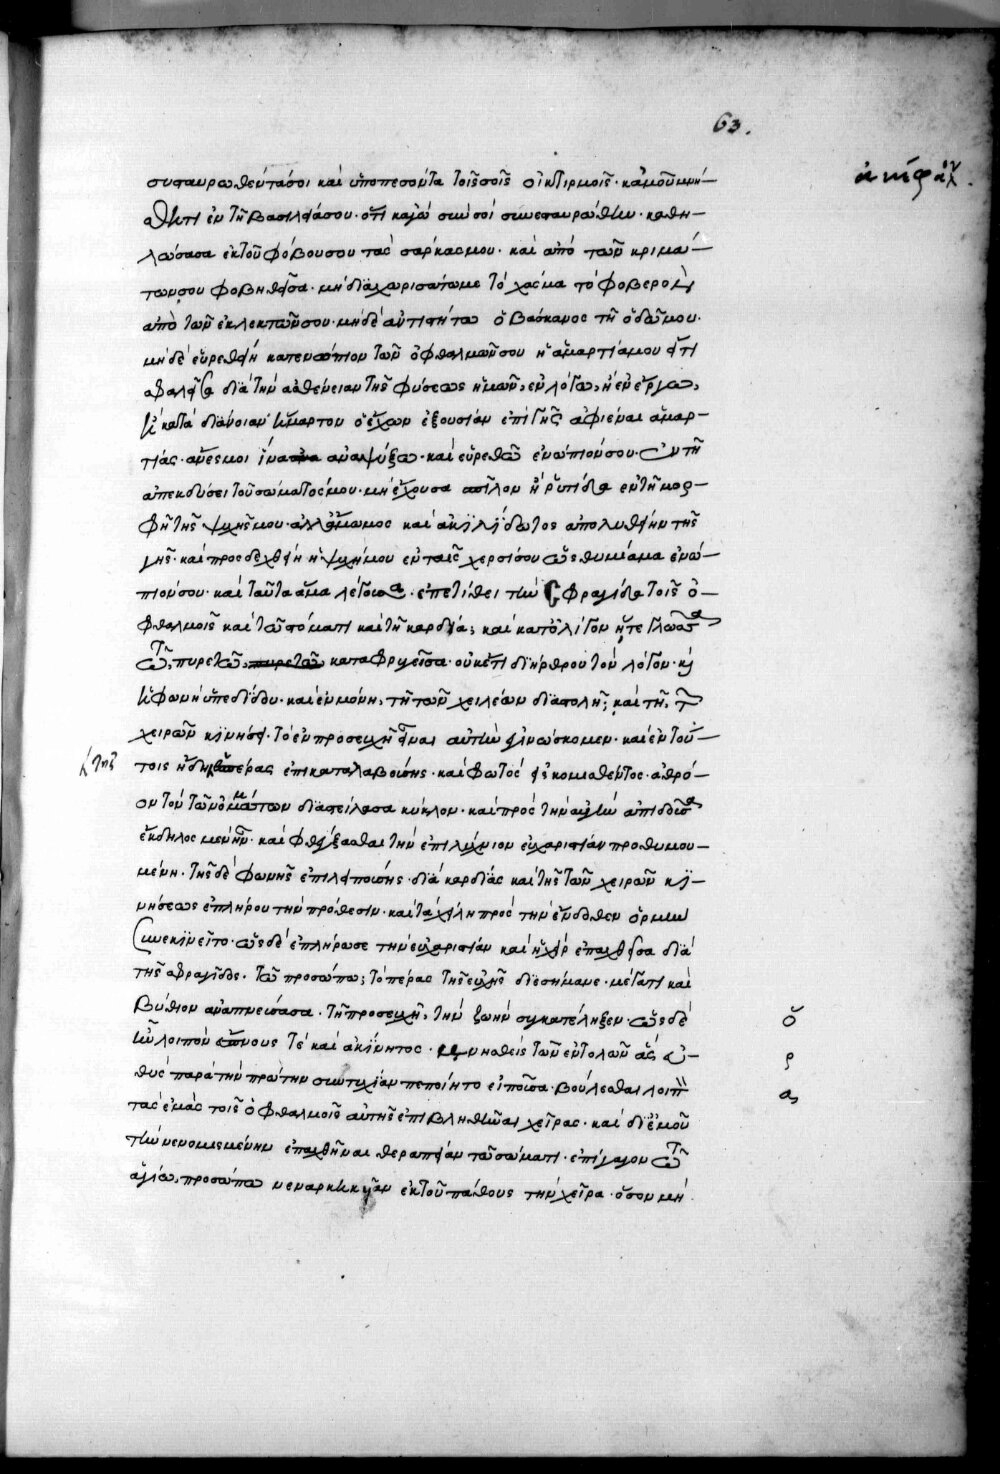 63.
συσταυρωθέντά σοι καὶ ὑποπεσόντα τοῖς σοῖς οἰκτιρμοῖς· κἀμοῦ μνή-
σθητι ἐν τῇ βασιλείᾳ σου· ὅτι κἀγὼ σὺν σοὶ συνεσταυρώθην· καθη-
λώσασα ἐκ τοῦ φόβου σου τὰς σάρκας μου· καὶ ἀπὸ τῶν κριμά-
των σου φοβηθεῖσα· μὴ διαχωρισάτω με τὸ χάσμα τὸ φοβερὸν
ἀπὸ τῶν ἐκλεκτῶν σου· μηδὲ ἀντιστήτω ὁ βάσκανος τῇ ὁδῷ μου·
μηδὲ εὑρεθείη κατενώπιον τῶν ὀφθαλμῶν σου ἡ ἁμαρτία μου εἴ τι
σφαλεῖσα διὰ τὴν ἀσθένειαν τῆς φύσεως ἡμῶν, ἐν λόγῳ, ἢ ἐν ἔργῳ,
ἢ κατὰ διάνοιαν ἥμαρτον ὁ ἔχων ἐξουσίαν ἐπὶ γῆς ἀφιέναι ἁμαρ-
τίας· ἄνες μοι ἵνα ἀναψύξω· καὶ εὑρεθῶ ἐνώπιόν σου· ἐν τῇ
ἀπεκδύσει τοῦ σώματός μου· μὴ ἔχουσα σπῖλον ἢ ῥυτίδα ἐν τῇ μορ-
φῇ τῆς ψυχῆς μου· ἀλλ' ἄμωμος καὶ ἀκηλίδωτος ἀπολυθείην τῆς
γῆς· καὶ προσδεχθείη ἡ ψυχή μου ἐν ταῖς χερσί σου ὡς θυμίαμα ἐνώ-
πιόν σου· καὶ ταῦτα ἅμα λέγουσα· ἐπετίθει τὴν σφραγίδα τοῖς ὀ-
φθαλμοῖς καὶ τῷ στόματι καὶ τῇ καρδίᾳ; καὶ κατ' ὀλίγον ἥ τε γλῶσσα
τῷ πυρετῷ, καταφρυγεῖσα· οὐκέτι διήρθρου τὸν λόγον· καὶ
ἡ φωνὴ ὑπεδίδου· καὶ ἐν μόνῃ, τῇ τῶν χειλέων διαστολῇ; καὶ τῇ, τῶν
χειρῶν κινήσει· τὸ ἐν προσευχῇ εἶναι αὐτὴν ἐγινώσκομεν· καὶ ἐν τού-
τοις ἤδη ἑσπέρας ἐπικαταλαβούσης· καὶ φωτὸς εἰσκομισθέντος· ἀθρό-
ον τὸν τῶν ὀμμάτων διαστείλασα κύκλον· καὶ πρὸς τὴν αὐγὴν ἀπιδοῦσα
ἔκδηλος μὲν ἦν· καὶ φθέγξασθαι τὴν ἐπιλύχνιον εὐχαριστίαν προθυμου-
μένη· τῆς δὲ φωνῆς ἐπιλειπούσης· διὰ καρδίας καὶ τῆς τῶν χειρῶν κι-
νήσεως ἐπλήρου τὴν πρόθεσιν· καὶ τὰ χείλη πρὸς τὴν ἔνδοθεν ὁρμὴν
συνεκινεῖτο· ὡς δὲ ἐπλήρωσε τὴν εὐχαριστίαν καὶ ἡ χεὶρ ἐπαχθεῖσα διὰ
τῆς σφραγῖδος· τῷ προσώπῳ; τὸ πέρας τῆς εὐχῆς διεσήμανε· μέγα τι καὶ
βύθιον ἀναπνεύσασα· τῇ προσευχῇ, τὴν ζωὴν συγκατέληξεν· ὡς δὲ
ἦν λοιπὸν ἄπνους τὲ καὶ ἀκίνητος· μνησθεὶς τῶν ἐντολῶν ἃς εὐ-
θὺς παρὰ τὴν πρώτην συντυχίαν πεποίητο εἰποῦσα· βούλεσθαι λοιπὸν
τὰς ἐμὰς τοῖς ὀφθαλμοῖς αὐτῆς ἐπιβληθῆναι χεῖρας· καὶ δι' ἐμοῦ
τὴν νενομισμένην ἐπαχθῆναι θεραπείαν τῷ σώματι· ἐπήγαγον τῷ
ἁγίῳ, προσώπῳ νεναρκηκυῖαν ἐκ τοῦ πάθους τὴν χεῖρα· ὅσον μὴ